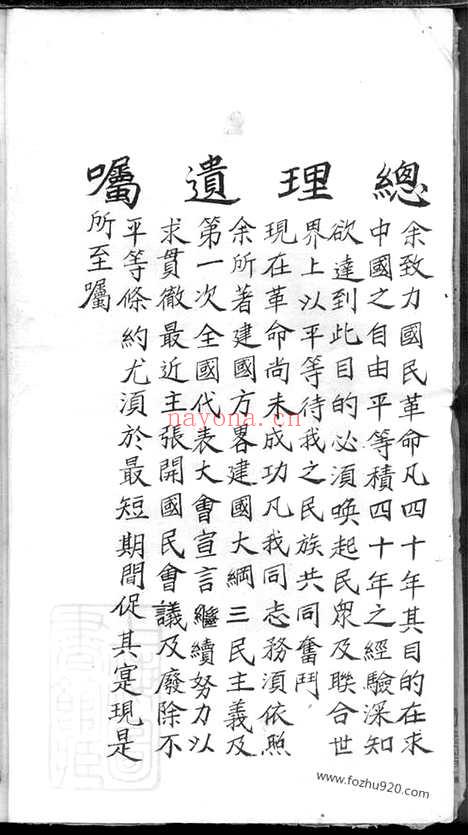 總理遺囑
余致力國民革命凡四十年其目的在求
中國之自由平等積四十年之經驗深知
欲達到此目的必須喚起民眾及聯合世
界上以平等待我之民族共同奮鬥
現在革命尚未成功凡我同志務須依照
余所著建國方畧建國大綱三民主義及
第一次全國代表大會宣言繼續努力以
求貫徹最近主張開國民會議及廢除不
平等條約尤須於最短期間促其寔現是
所至囑
nayona.cn
www.fozhu920.com